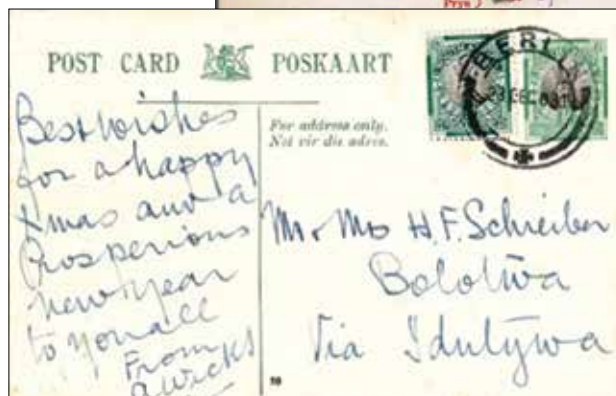 POST CARD POSKAART
Best wishes
for a happy
Xmas and a
Prosperious
new year
to you all
From
For address only.
Net vir die adres.
BERLIN
Mr & Mrs H.F. Schreiber
Bolotwa
Via Idutywa